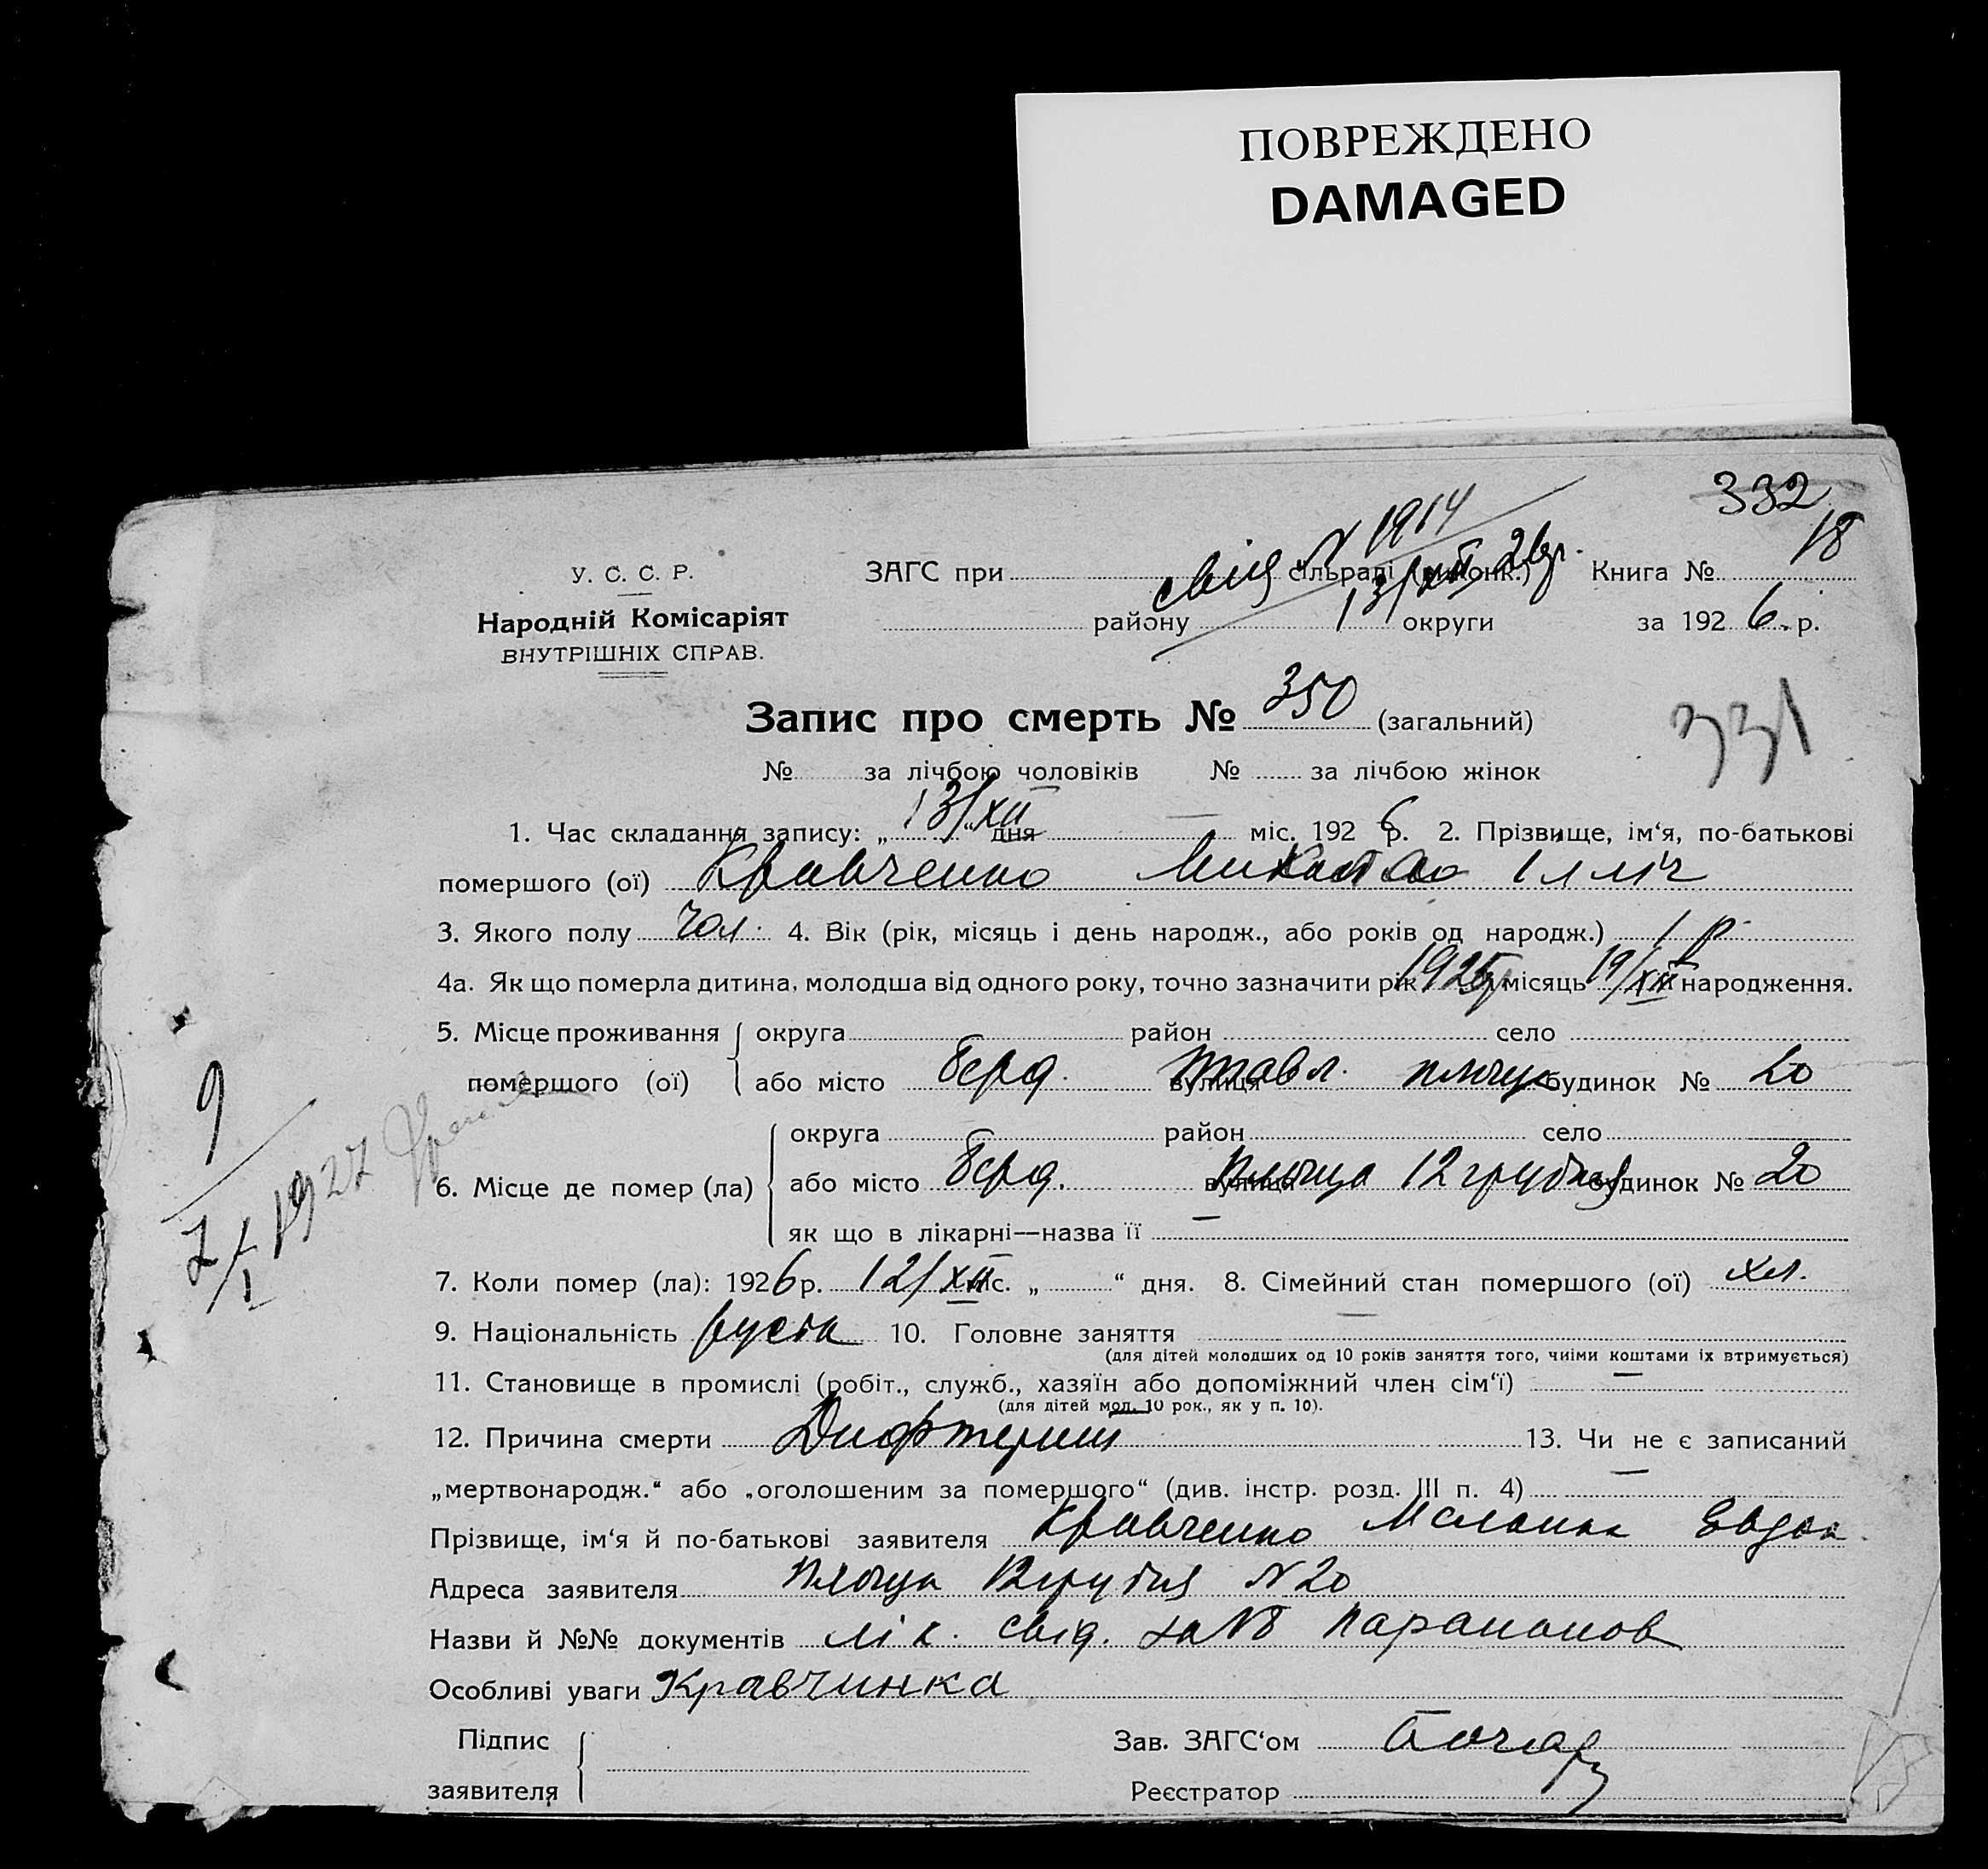 ПОВРЕЖДЕНО
DAMAGED
332
свід N 1914
13/XII 26 р.
У. С. С. Р.
ЗАГС при сільраді (виконк.) Книга № 18
Народній Комісаріят
району округи за 1926 р.
ВНУТРІШНІХ СПРАВ.
Запис про смерть № 350 (загальний)
331
№ за лічбою чоловіків № за лічбою жінок
1. Час складання запису: „13/XII“ дня — міс. 1926 р. 2. Прізвище, ім‘я, по-батькові
помершого (ої) Кравченко Микола Ілліч
3. Якого полу чол. 4. Вік (рік, місяць і день народж., або років од народж.) 1 р
4а. Як що померла дитина, молодша від одного року, точно зазначити рік 1925 місяць 19/XII народження.
5. Місце проживання округа район село
помершого (ої) або місто Берд. вулиця площа будинок № 20
9
7/I 1927
округа район село
6. Місце де помер (ла) або місто Берд. вулиця площа 12 грудня будинок № 20
як що в лікарні—назва її —
7. Коли помер (ла): 1926 р. 12/XII міс. „ “ дня. 8. Сімейний стан помершого (ої) хл.
9. Національність руська 10. Головне заняття —
(для дітей молодших од 10 років заняття того, чиїми коштами їх втримується)
11. Становище в промислі (робіт., служб., хазяїн або допоміжний член сім‘ї) —
(для дітей мол. 10 рок., як у п. 10).
12. Причина смерти Дифтерит 13. Чи не є записаний
„мертвонародж.“ або „оголошеним за помершого“ (див. інстр. розд. III п. 4) —
Прізвище, ім‘я й по-батькові заявителя Кравченко Меланка Евдок
Адреса заявителя площа 12 грудня N 20
Назви й №№ документів лік. свід. Парамонов
Особливі уваги Кравчинка
Підпис
заявителя
Зав. ЗАГС‘ом
Реєстратор